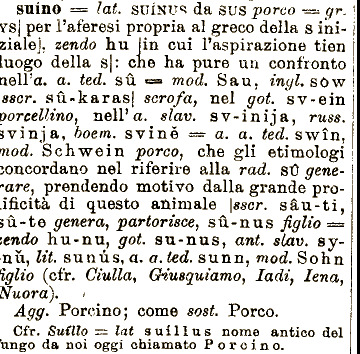 suíno = lat. SUÍNUS da SUS porco = gr.
ys[ per l'aferesi propria al greco della s ini-
ziale], zendo hu [in cui l'aspirazione tien
luogo della s]: che ha pure un confronto
nell'a. a. ted. sû = mod. Sau, ingl. sow
sscr. sû-karas] scrofa, nel got. sv-ein
porcellino, nell'a. slav. sv-inija, russ.
svinja, boem. svině = a. a. ted. swîn,
mod. Schwein porco, che gli etimologi
concordano nel riferire alla rad. SÛ gene-
rare, prendendo motivo dalla grande pro-
lificità di questo animale [sscr. sâu-ti,
sû-te genera, partorisce, sû-nus figlio =
zendo hu-nu, got. su-nus, ant. slav. sy-
nŭ, lit. sunús, a. a. ted. sunn, mod. Sohn
figlio (cfr. Ciulla, Giusquiamo, Iadi, Iena,
Nuora).
Agg. Porcino; come sost. Porco.
Cfr. Suíllo = lat suillus nome antico del
fungo da noi oggi chiamato Porcino.